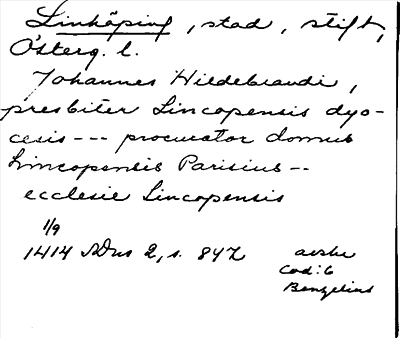 Linköping, stad, stift,
Österg. l.
Johannes Hildebrandi,
presbiter Lincopensis dyo-
cesis --- procurator domus
Lincopensis Parisius --
ecclesie Lincopensis
1/9
1414 SDns 2, s. 847 avskr
Cod: 6
Benzelius